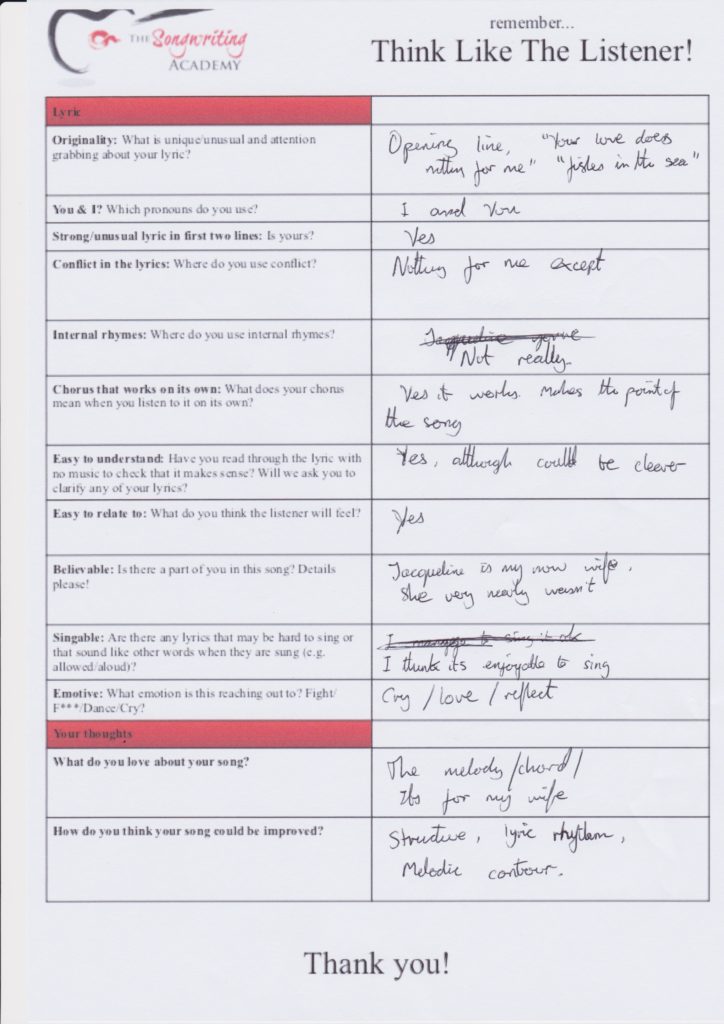 THE Songwriting
ACADEMY
remember...
Think Like The Listener!
Lyric
Originality: What is unique/unusual and attention
grabbing about your lyric?
Opening line, "Your love does
nothin for me" "fishes in the sea"
You & I? Which pronouns do you use?
I and You
Strong/unusual lyric in first two lines: Is yours?
Yes
Conflict in the lyrics: Where do you use conflict?
Nothing for me except
Internal rhymes: Where do you use internal rhymes?
Not really.
Chorus that works on its own: What does your chorus
mean when you listen to it on its own?
Yes it works. Makes the point of
the song
Easy to understand: Have you read through the lyric with
no music to check that it makes sense? Will we ask you to
clarify any of your lyrics?
Yes, although could be clearer
Easy to relate to: What do you think the listener will feel?
Yes
Believable: Is there a part of you in this song? Details
please!
Jacqueline is my now wife.
She very nearly wasn't
Singable: Are there any lyrics that may be hard to sing or
that sound like other words when they are sung (e.g.
allowed/aloud)?
I to sing it ok
I think its enjoyable to sing
Emotive: What emotion is this reaching out to? Fight/
F***/Dance/Cry?
Cry / love / reflect
Your thoughts
What do you love about your song?
The melody/chord/
Its for my wife
How do you think your song could be improved?
Structure, lyric rhythm,
Melodic contour.
Thank you!